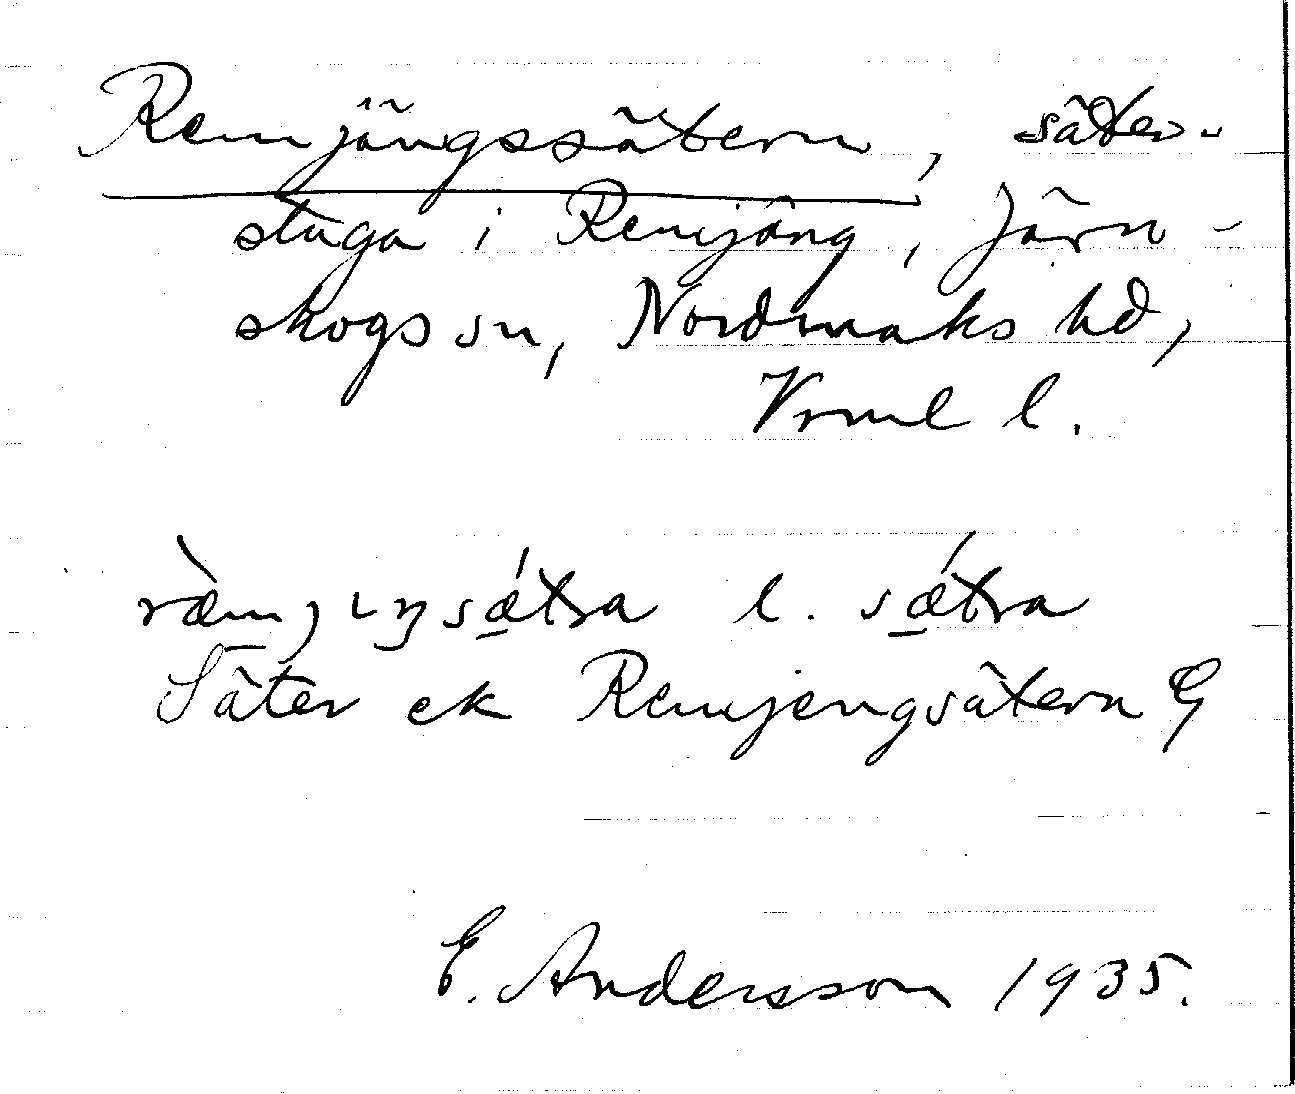 Remjängssätern, säter-
stuga i Remjäng, Järn-
skogs sn, Nordmaks hd,
Vrml l.
l. sǽtra
Säter ek Remjengsätern G
E. Andersson 1935.